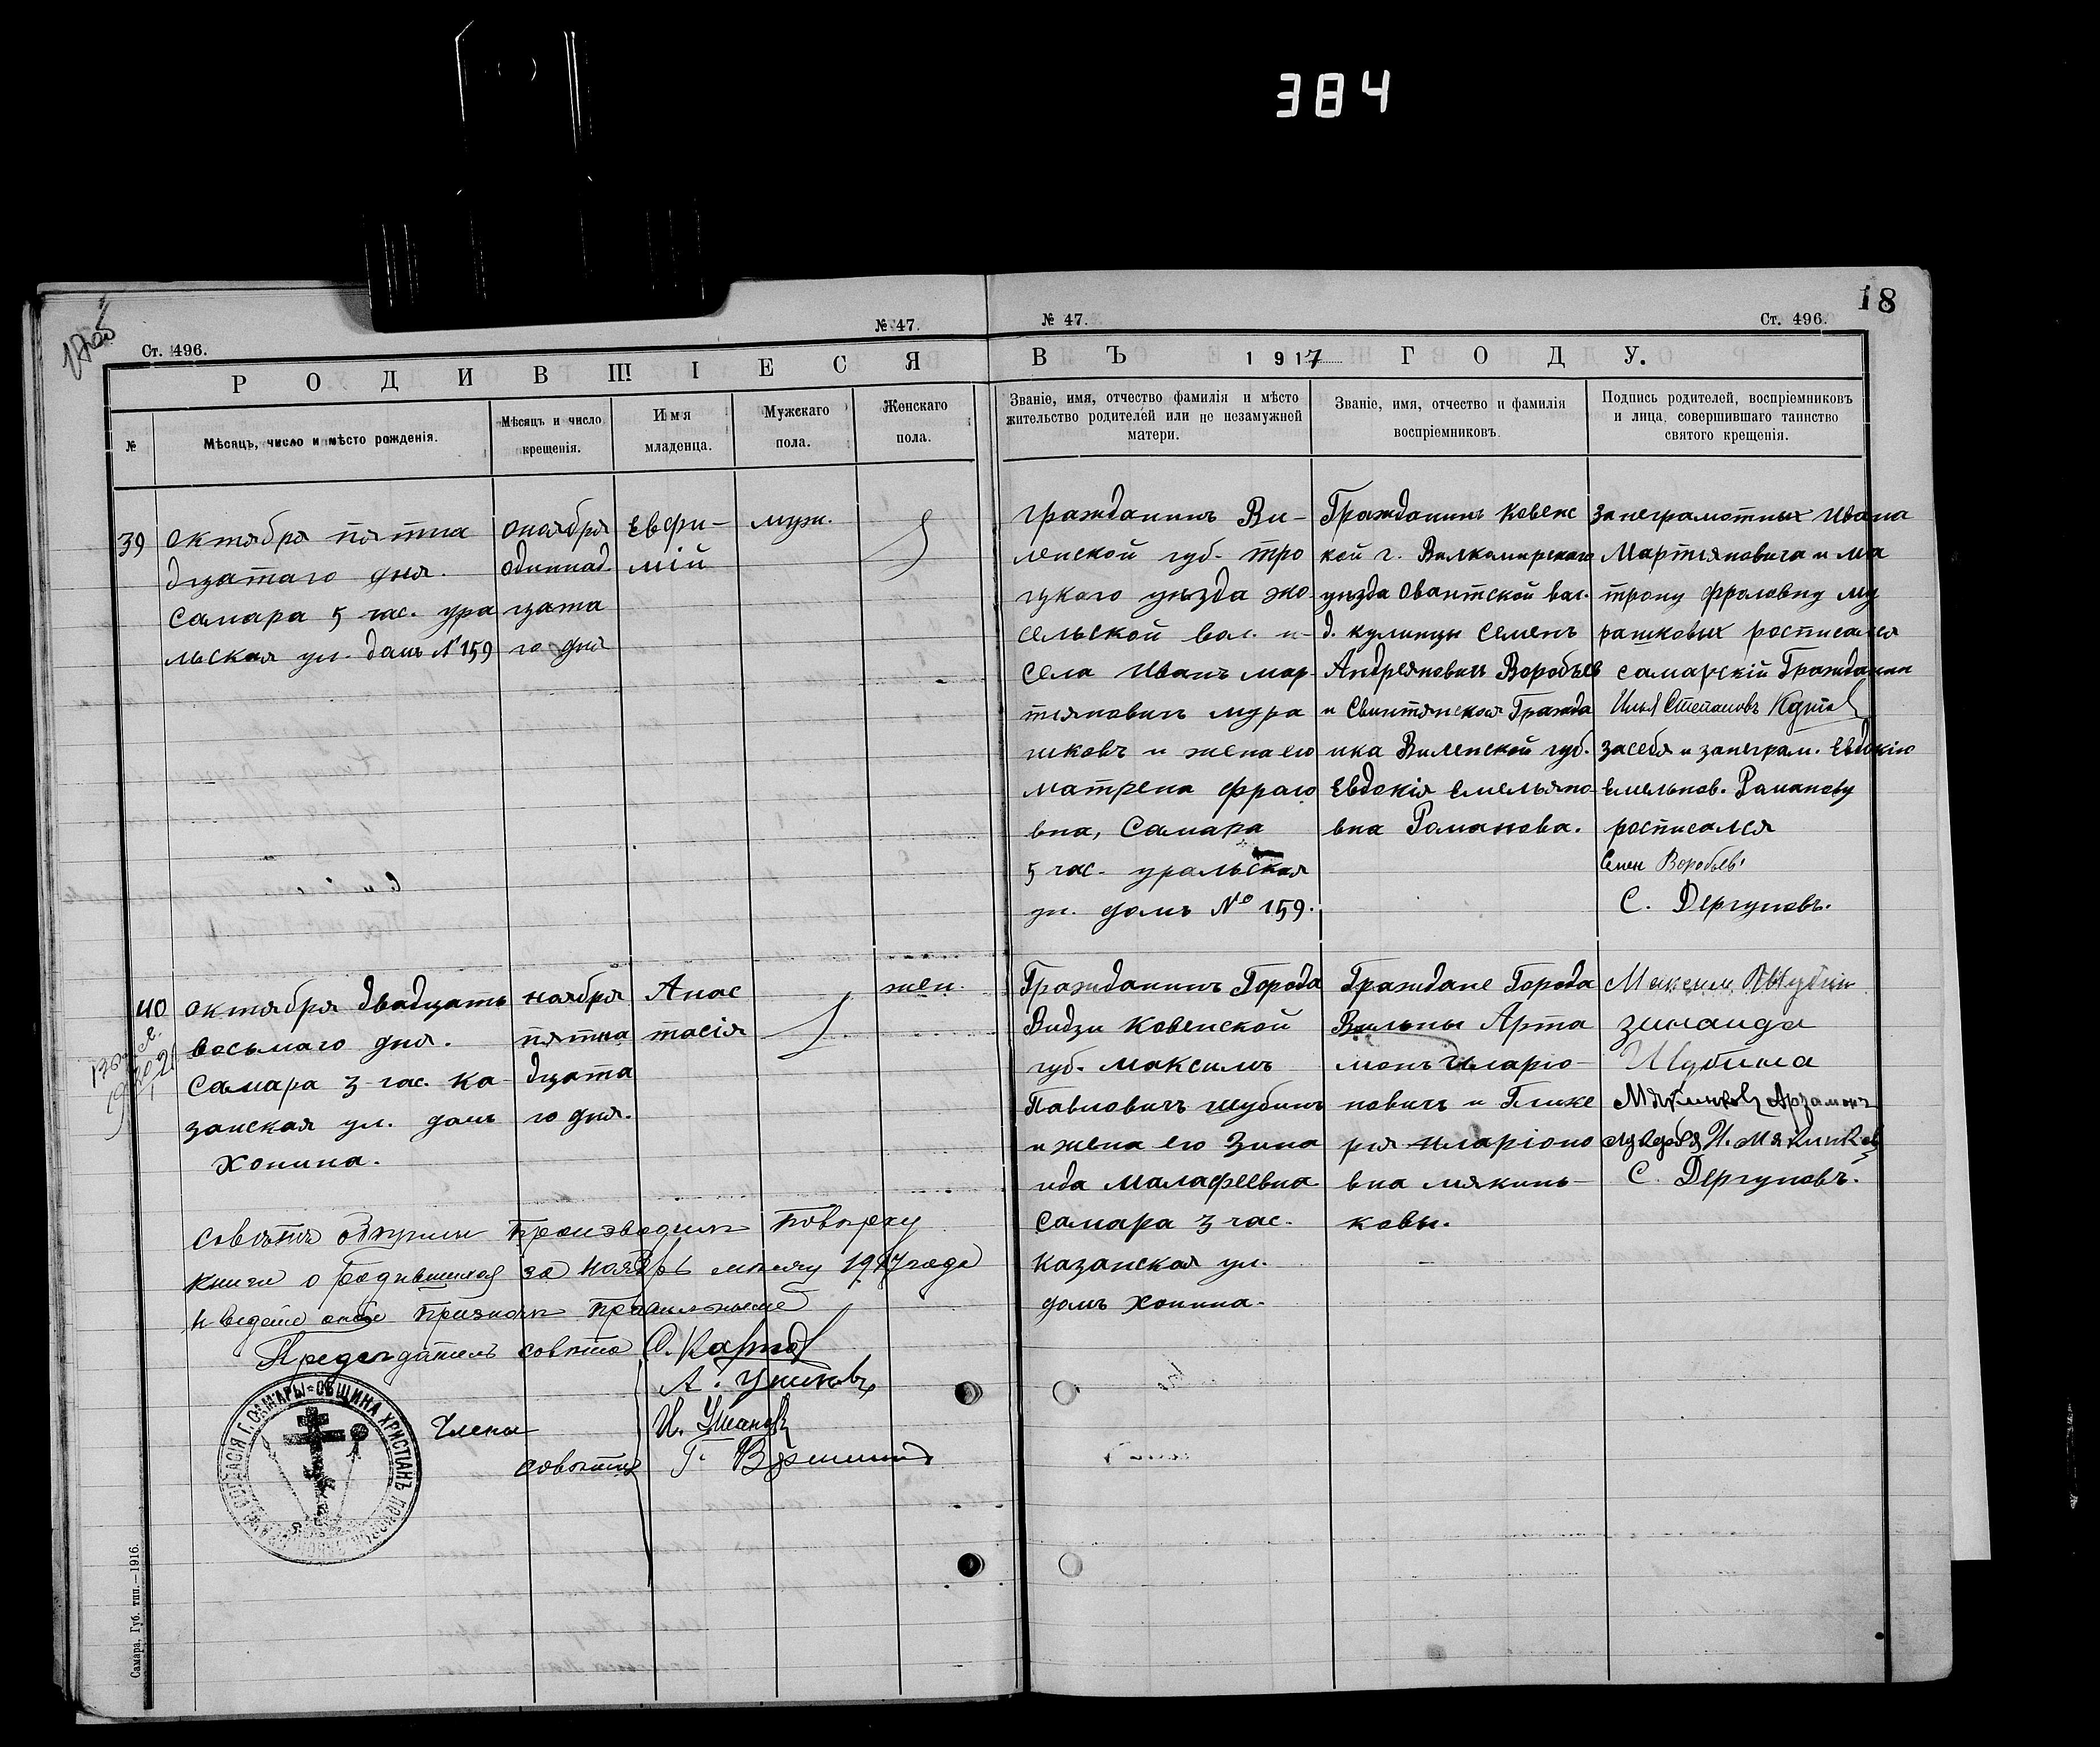 384
18
Ст. 496.
№ 47.
№ 47.
Ст. 496.
РОДИВШІЕСЯ
ВЪ 1917 ГОДУ.
№
Мѣсяцъ, число и мѣсто рожденія.
Мѣсяцъ и число
крещенія.
Имя
младенца.
Мужскаго
пола.
Женскаго
пола.
Званіе, имя, отчество фамилія и мѣсто
жительство родителей или не незамужней
матери.
Званіе, имя, отчество и фамилія
воспріемниковъ.
Подпись родителей, воспріемниковъ
и лица, совершившаго таинство
святого крещенія.
39
октября пятна
дцатаго дня.
Самара 5 час. ура
льская ул. домъ № 159
ноября
одиннад
цата
го дня
Евфи-
мій
муж.
гражданинъ Ви-
ленской губ. тро
цкаго уѣзда
сельской вол.
села Иванъ мар-
тияновичъ мура
шковъ и жена его
матрена фрало
вна, Самара
5 час. уральская
ул. домъ № 159.
Гражданинъ Ковенс
кой г. Вилкомирскаго
уѣзда Овантской вол.
д. кулинцы Семенъ
Андреяновичъ Воробьев
и Свинтянская Гражда
нка Виленской губ.
Евдокія Емельяно
вна Романова.
за неграмотных Ивана
Мартияновича и ма
трону Фроловну му
рашковых росписался
самарскій Гражданин
Илья Степановъ
за себя и за неграм. Евдокію
Емельянов. Романову
росписался
Семен Воробьев
С. Дергуновъ.
40
октября двадцать
восьмаго дня.
Самара 3 час. Ка-
занская ул. домъ
Хонина.
ноября
пятна
дцата
го дня.
Анас
тасія
жен.
Гражданинъ Города
Видзи Ковенской
губ. Максимъ
Павловичъ Шубинъ
и жена его Зина
ида Малафеевна
Самара 3 час.
Казанская ул.
домъ Хонина.
Граждане Города
Вильны Арта
монъ Иларіо-
новичъ и Глике
рия Иларіоно
вна мякинь-
ковы.
Максим Шубин
Зинаида
Шубина
Мякинков Арзамонъ
С. Дергуновъ.
Совѣтъ общины производилъ повѣрку
книги о родившихся за ноябрь мѣсяцъ 1917 года
и призналъ правильнымъ
Председатель совѣта
А. Ушковъ
Члены
совѣта
Самара. Губ. тип.—1916.